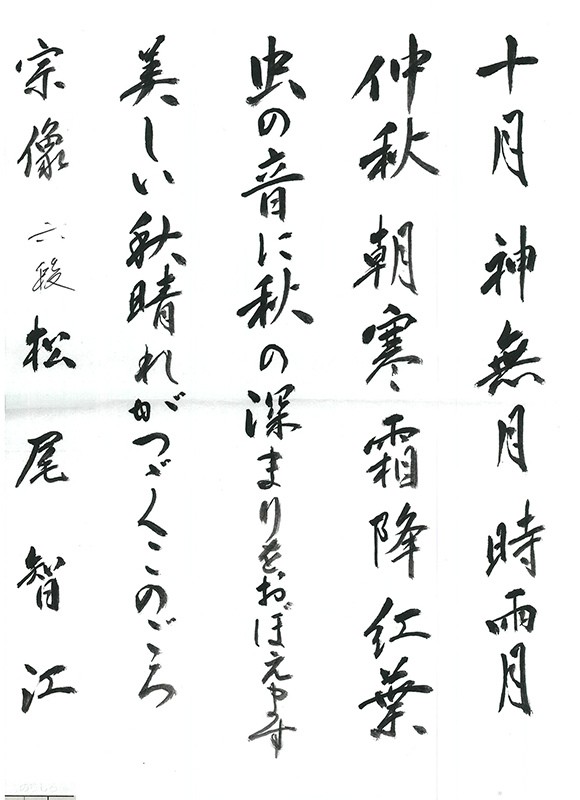 十月 神無月 時雨月
仲秋 朝寒 霜降 紅葉
虫の音に秋の深まりをおぼえます
美しい秋晴れがつづくこのごろ
宗像 六段 松尾智江